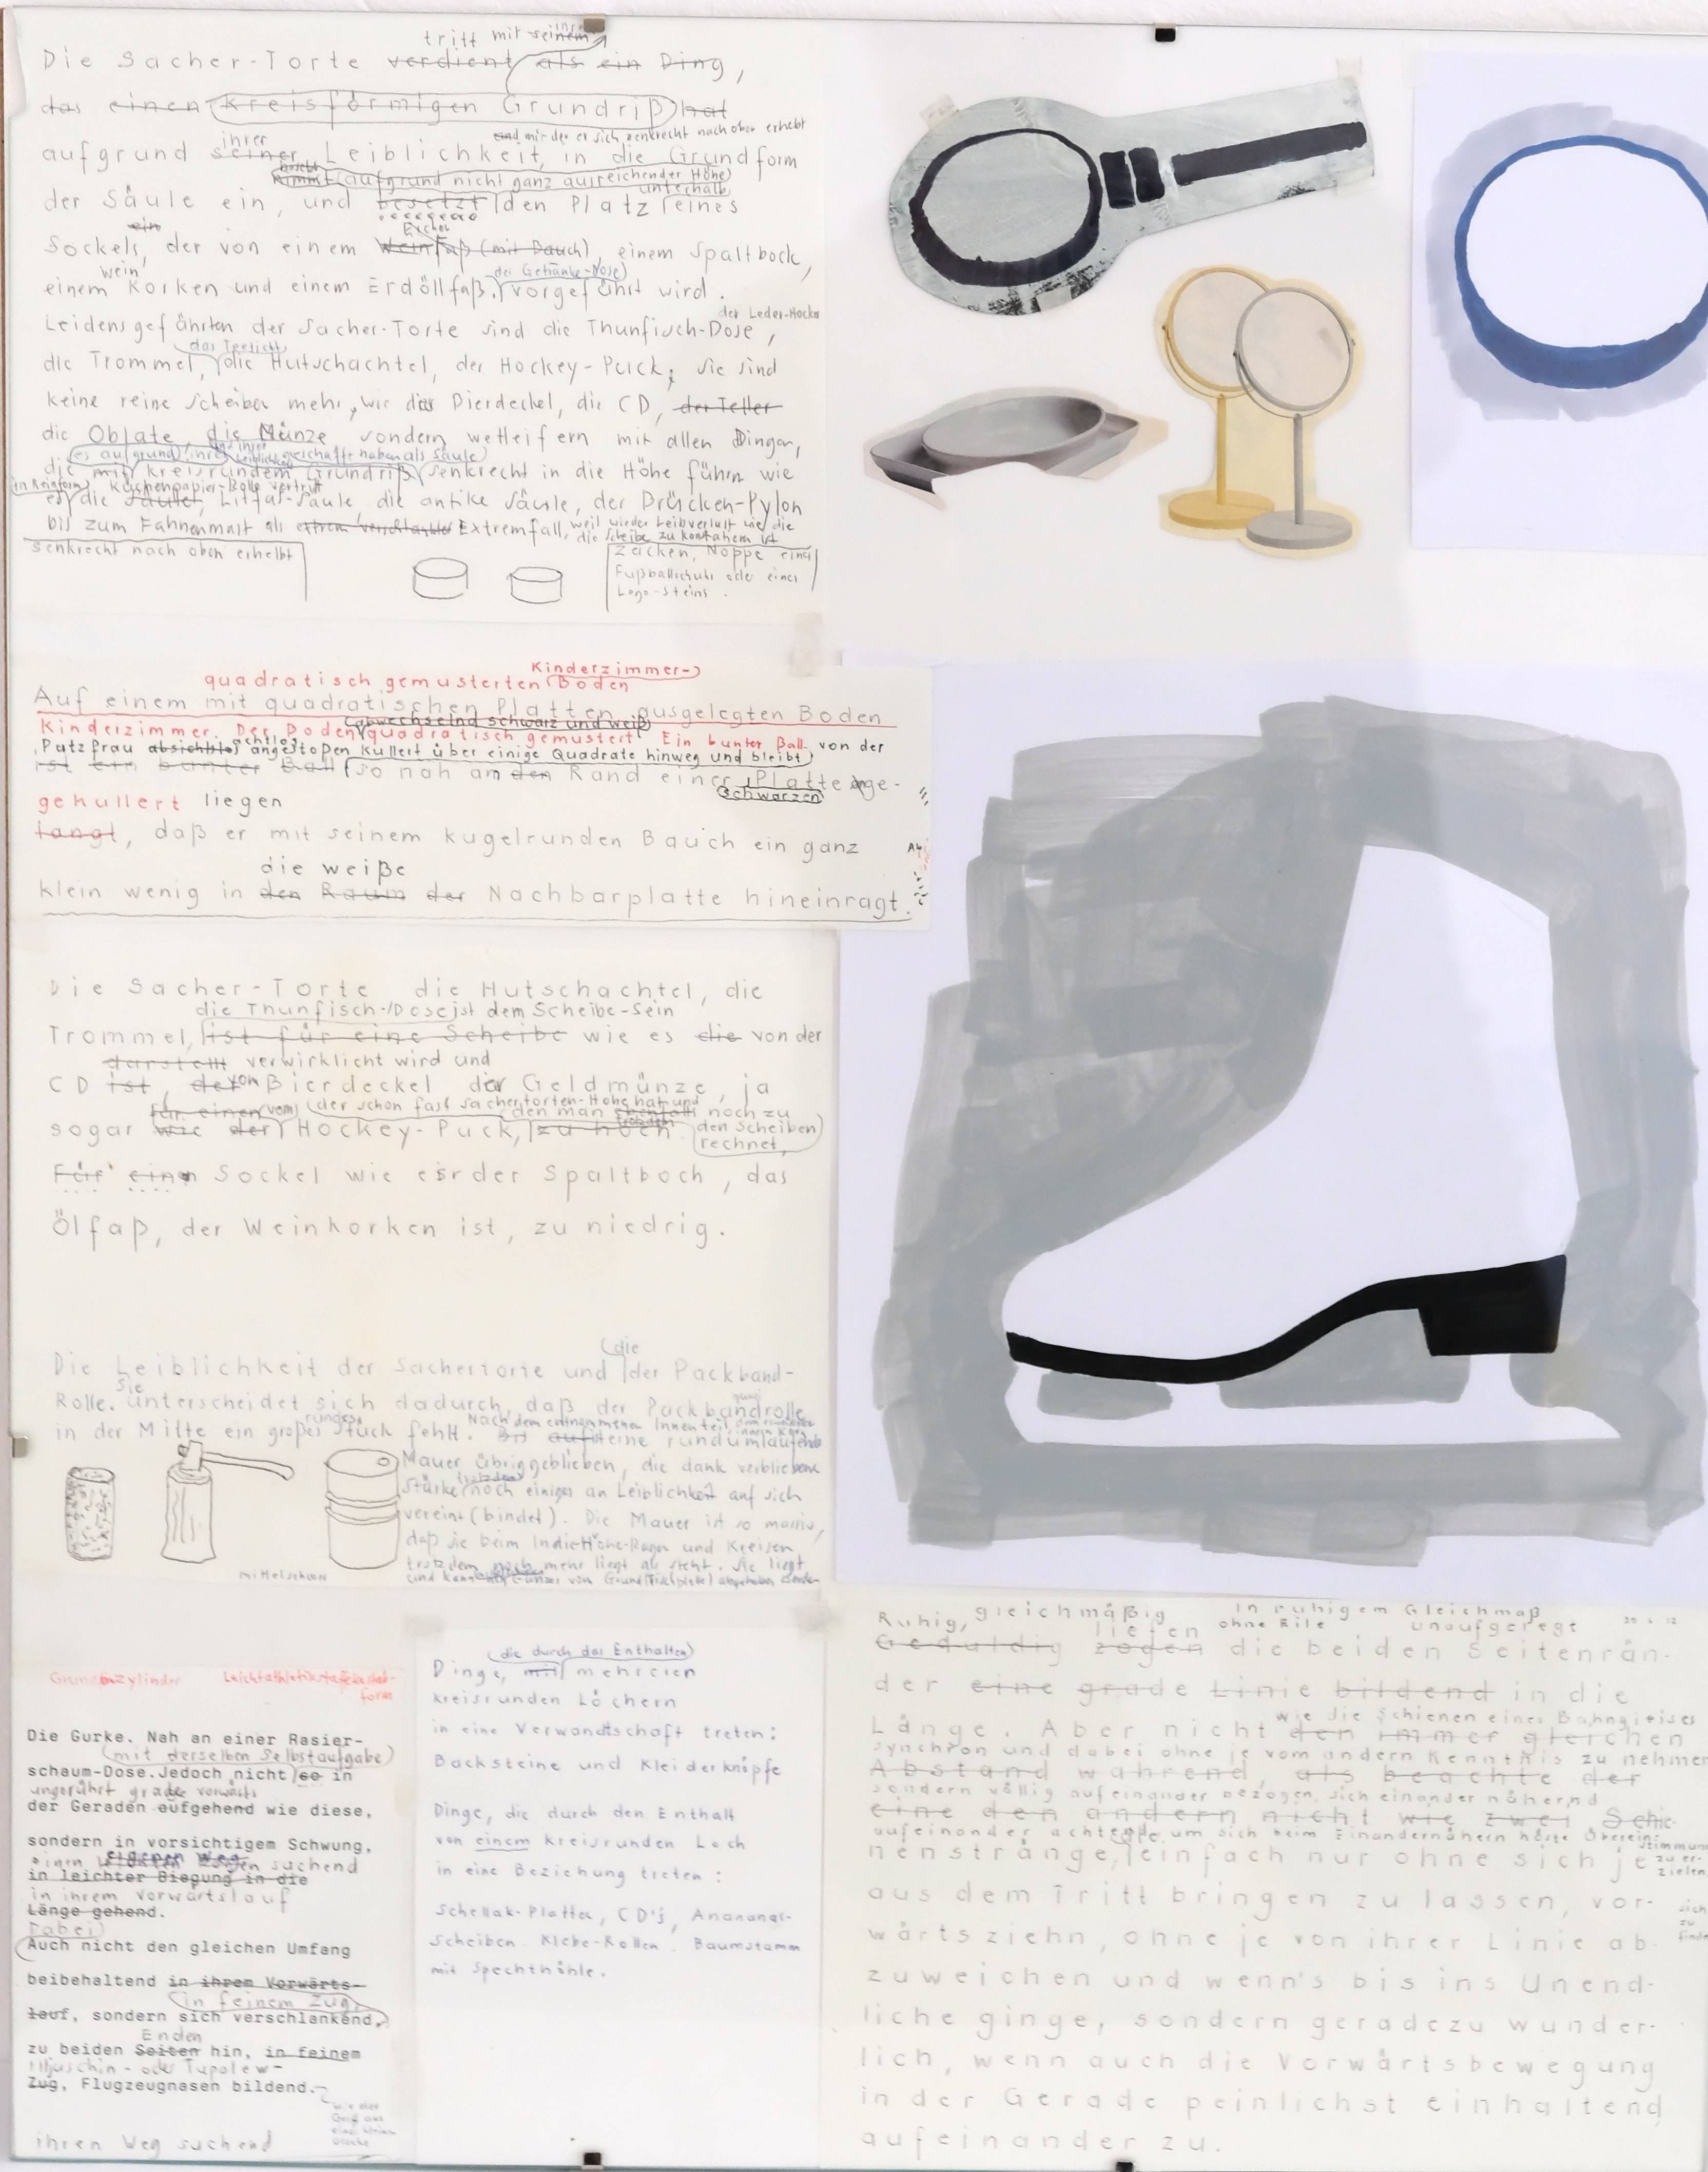 tritt mit seinem
Die Sacher-Torte verdient als ein Ding,
das einen kreisförmigen Grundriß hat
und mit der er sich senkrecht nach oben erhebt
ihrer
aufgrund seiner Leiblichkeit, in die Grundform
nimmt (aufgrund nicht ganz ausreichender Höhe)
unterhalb
der Säule ein, und besetzt den Platz eines
ein
Sockels, der von einem Weinfaß (mit Bauch), einem Spaltbock,
wein
der Getränke-Dose)
einem Korken und einem Erdöllfaß, vorgeführt wird.
der Leder-Hocker
Leidensgefährten der Sacher-Torte sind die Thunfisch-Dose,
das Teelicht,
die Trommel, die Hutschachtel, der Hockey-Puck; sie sind
keine reine Scheiben mehr, wie der Bierdeckel, die CD, der Teller
die Oblate, die Münze, sondern wetteifern mit allen Dingen,
(es aufgrund ihrer Leiblichkeit geschafft haben als Säule)
die mit kreisrundem Grundriß senkrecht in die Höhe führn wie
in Reinform) Küchenpapier-Rolle vertritt
es die Säule, Litfas-Säule, die antike Säule, der Brücken-Pylon
bis zum Fahnenmast als Extremfall, weil wieder Leibverlust wie die
die Scheibe zu kontatiern ist
senkrecht nach oben erhebt
Zacken, Noppe eines
Fußballschuhs oder eines
Lego-Steins.
Kinderzimmer-
quadratisch gemusterten Boden
Auf einem mit quadratischen Platten ausgelegten Boden
(abwechselnd schwarz und weiß)
Kinderzimmer. Der Boden quadratisch gemustert. Ein bunter Ball von der
Putzfrau absichtslos achtlos angestoßen kullert über einige Quadrate hinweg und bleibt
ist ein bunter Ball so nah am den Rand einer Platte ge-
schwarzen
gekullert liegen
langt, daß er mit seinem kugelrunden Bauch ein ganz
die weiße
klein wenig in den Raum der Nachbarplatte hineinragt.
Die Sacher-Torte die Hutschachtel, die
die Thunfisch-Dose ist dem Scheibe-Sein
Trommel, ist für eine Scheibe wie es die von der
darstellt verwirklicht wird und
CD ist, der vom Bierdeckel der Geldmünze, ja
für einen (vom) (der schon fast Sachertorten-Höhe hat und
den man ebenfalls noch zu
sogar wie der Hockey-Puck, zu hoch
den Scheiben
rechnet,
Für einen Sockel wie es der Spaltboch, das
Ölfaß, der Weinkorken ist, zu niedrig.
(die
Die Leiblichkeit der Sachertorte und der Packband-
Sie
Rolle. unterscheidet sich dadurch, daß der Packbandrolle
rundes
Nach dem entnommenen Innenteil
in der Mitte ein großes Stück fehlt. eine rundumlaufende
Mauer übriggeblieben, die dank verbliebene
(trotzdem)
Stärke noch einiges an Leiblichkeit auf sich
vereint (bindet). Die Mauer ist so massiv,
daß sie beim Indie-Höhe-Ragen und Kreisen
trotzdem noch mehr liegt als steht. Sie liegt
und kann als Ganzes vom Grund (Tischplatte) abgehoben werden
mittelschön
Grundzylinder
Leichtathletikstafettenstab-
form
Die Gurke. Nah an einer Rasier-
(mit derselben Selbstaufgabe)
schaum-Dose. Jedoch nicht so in
ungerührt grade vorwärts
der Geraden aufgehend wie diese,
sondern in vorsichtigem Schwung,
eigenen Weg
einen leichten Bogen suchend
in leichter Biegung in die
in ihrem Vorwärtslauf
Länge gehend.
Dabei
Auch nicht den gleichen Umfang
beibehaltend in ihrem Vorwärts-
(in feinem Zug,
lauf, sondern sich verschlankend,
Enden
zu beiden Seiten hin, in feinem
Iljuschin- oder Tupolew-
Zug, Flugzeugnasen bildend.
wie der
Geist aus
ihren Weg suchend
(die durch das Enthalten)
Dinge, mit mehreren
kreisrunden Löchern
in eine Verwandtschaft treten:
Backsteine und Kleiderknöpfe
Dinge, die durch den Enthalt
von einem kreisrunden Loch
in eine Beziehung treten:
Schellak-Platten, CD's, Ananans-
scheiben. Klebe-Rollen. Baumstamm
mit Spechthöhle.
In ruhigem Gleichmaß
Ruhig, gleichmäßig
ohne Eile
unaufgeregt
liefen
Geduldig zogen die beiden Seitenrän-
der eine grade Linie bildend in die
wie die Schienen eines Bahngleises
Länge. Aber nicht den immer gleichen
synchron und dabei ohne je vom andern Kenntnis zu nehmen
Abstand wahrend, als beachte der
sondern völlig aufeinander bezogen, sich einander nähernd
eine den andern nicht wie zwei Schie-
aufeinander achtend, um sich beim Einandernähern höste Überein-
stimmung
nenstränge, einfach nur ohne sich je
zu er-
zielen
aus dem Tritt bringen zu lassen, vor-
sich
zu
finden
wärts ziehn, ohne je von ihrer Linie ab-
zuweichen und wenn's bis ins Unend-
liche ginge, sondern geradezu wunder-
lich, wenn auch die Vorwärtsbewegung
in der Gerade peinlichst einhaltend
aufeinander zu.